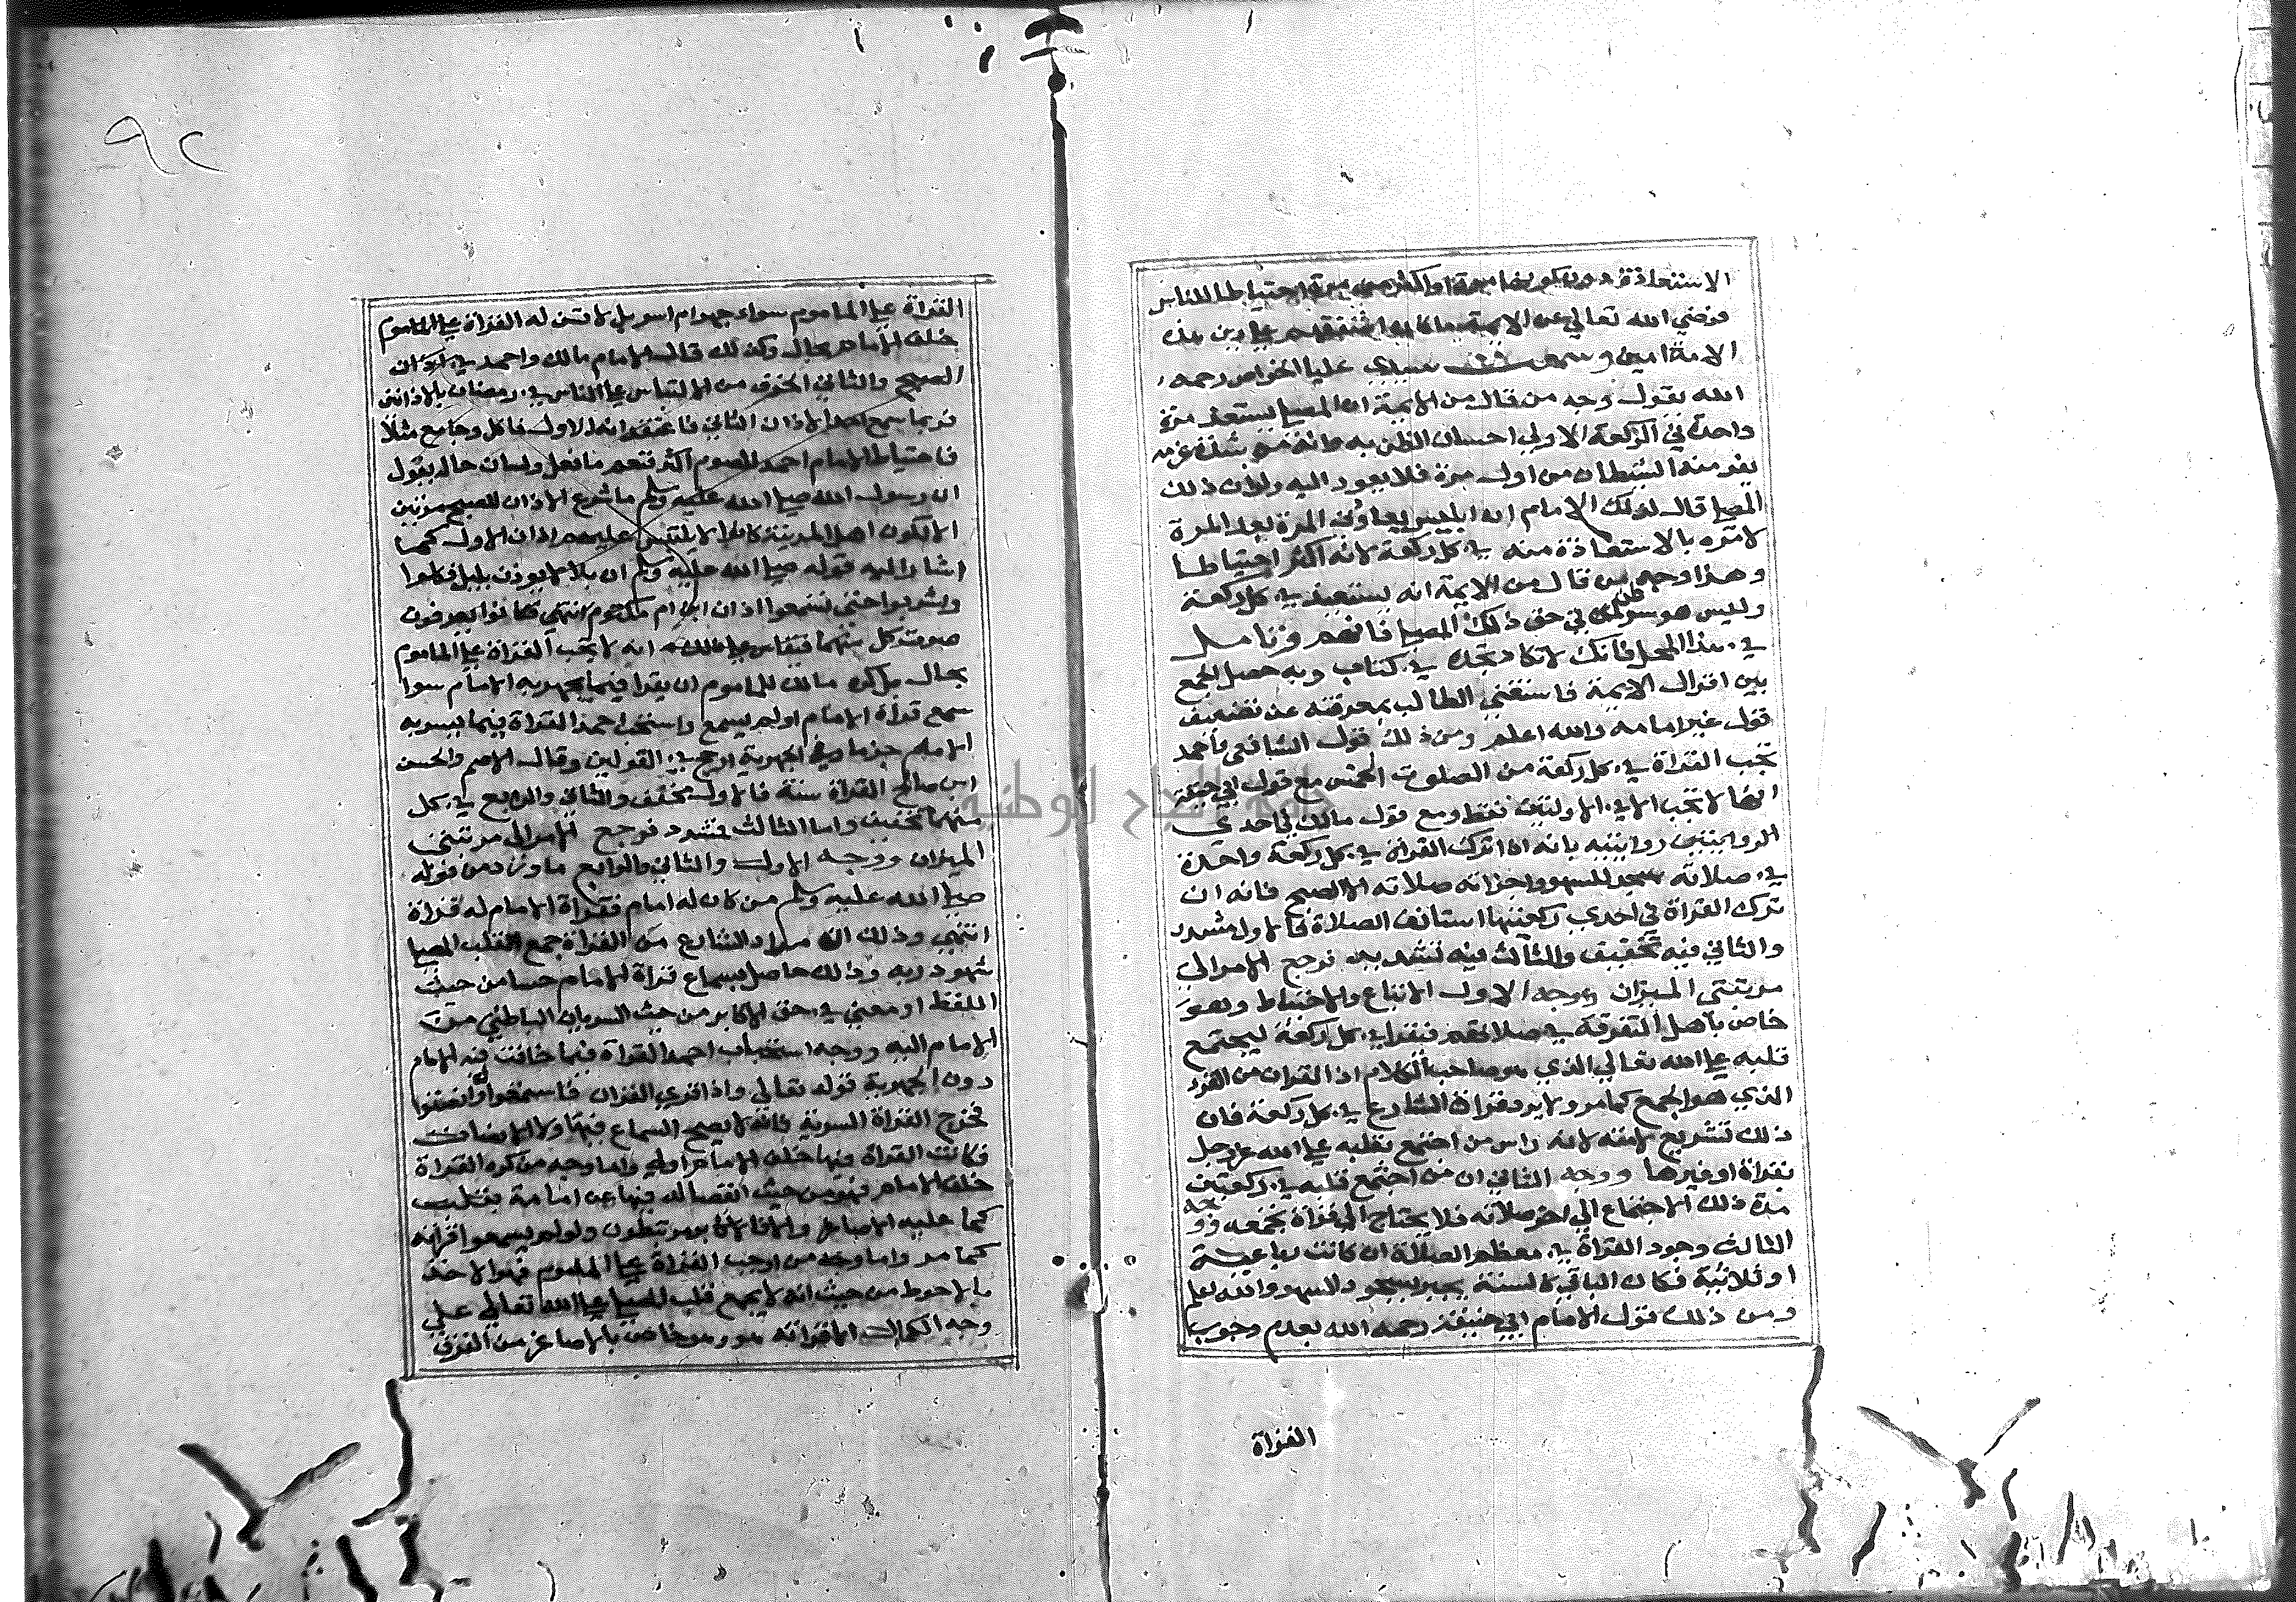 الاستعاذة دون كونها مرة او اكثر من مرة احتياطا للناس
فرضي الله تعالى عن الايمة ما كان اشفقهم على دين هذه
الامة امين وسمعت سيدي عليا الخواص رحمه
الله يقول وجه من قال من الايمة ان المصلي يستعيذ مرة
واحدة في الركعة الاولى احسان الظن به وانه من شدة عزمه
يفر منه الشيطان من اول مرة فلا يعود اليه ولو ان ذلك
المصلي قال لذلك الامام ان ابليس يعاودني المرة بعد المرة
لامره بالاستعاذة منه في كل ركعة لانه اكثر احتياطا
وهذا وجه من قال من الايمة انه يستعيذ في كل ركعة
وليس هو سوظن في حق ذلك المصلي فافهم وتامل
في هذا المحل فانك لا تكاد تجده في كتاب وبه حصل الجمع
بين اقوال الايمة فاستغني الطالب بمعرفته عن تضعيف
قول غير امامه والله اعلم ومن ذلك قول الشافعي واحمد
تجب القراة في كل ركعة من الصلوت الخمس مع قول ابي حنيفة
انها لا تجب الا في الاولتين فقط ومع قول مالك في احدي
الروايتين روايتيه بانه ان ترك القراة في كل ركعة واحدة
في صلاته سجد للسهو واجزاته صلاته الا الصبح فانه ان
ترك القراة في احدي ركعتيها استانف الصلاة فالاول مشدد
والثاني فيه تخفيف والثالث فيه تشديد فرجع الامر الي
مرتبتي الميزان ووجه الاول الاتباع والاحتياط وهو
خاص باهل التفرقة في صلاتهم فيقرا في كل ركعة ليجتمع
قلبه على الله تعالى الذي هو صاحب الكلام اذ القران من القرء
الذي هو الجمع كما مر ولا يرد قراة الشارع في كل ركعة فان
ذلك تشريع لامته لانه راس من اجتمع بقلبه على الله عز وجل
بقراة او غيرها ووجه الثاني ان من اجتمع قلبه في ركعتين
مدة ذلك الاجتماع الي اخر صلاته فلا يحتاج الي قراة تجمعه ووجه
الثالث وجود القراة في معظم الصلاة ان كانت رباعية
او ثلاثية فكان الباقي كالسنة يجبر بسجود السهو والله اعلم
ومن ذلك قول الامام ابي حنيفة رحمه الله بعدم وجوب
القراة
٩٢
القراة على الماموم سواء جهر ام اسر بل لا تسن له القراة على الماموم
خلف الامام بحال وكذلك قال الامام مالك واحمد في اذان
الصبح والثاني الخوف من الالتباس على الناس في رمضان بالاذانين
فربما سمع احد الاذان الثاني فاعتقد انه الاول فاكل وجامع مثلا
فاحتياط الامام احمد للصوم اكثر فنعم ما فعل ولسان حاله يقول
ان رسول الله صلى الله عليه وسلم ما شرع الاذان للصبح مرتين
الا لكون اهل المدينة كانوا لا يلتبس عليهم اذان الاول كما
اشار اليه قوله صلى الله عليه وسلم ان بلالا يوذن بليل فكلوا
واشربوا حتى تسمعوا اذان ابن ام مكتوم انتهي فكانوا يعرفون
صوت كل منهما فيقاس على ذلك انه لا تجب القراة على الماموم
بحال بل كره مالك للماموم ان يقرا فيما يجهر به الامام سوا
سمع قراة الامام او لم يسمع واستحب احمد القراة فيما يسر به
الامام جزما وفي الجهرية ارجح في القولين وقال الاصم والحسن
ابن صالح القراة سنة فالاول مخفف والثاني والرابع في كل
منهما تخفيف واما الثالث فشدد فرجع الامر الي مرتبتي
الميزان ووجه الاول والثاني والرابع ما ورد من قوله
صلى الله عليه وسلم من كان له امام فقراة الامام له قراة
انتهي وذلك ان مراد الشارع من القراة جمع القلب المصلي
شهود ربه وذلك حاصل بسماع قراة الامام حسا من حيث
اللفظ او معني في حق الاكابر من حيث السريان الباطني من
الامام اليه ووجه استحباب احمد القراة فيما خافت فيه الامام
دون الجهرية قوله تعالى واذا قري القران فاستمعوا وانصتوا
فخرج القراة السرية فانه لا يصح السماع فيها ولا الانصات
فكانت القراة فيها خلف الامام اولي واما وجه من كره القراة
خلف الامام فهو من حيث انفصاله فيها عن امامة بقلب
كما عليه الاصاغر والا فالاكابر مرتبطون ولو لم يسمعوا قراته
كما مر واما وجه من اوجب القراة على الماموم فهو الاخذ
بالاحوط من حيث انه لا يجمع قلب المصلي على الله تعالى على
وجه الكمال الا قراته هو وهو خاص بالاصاغر من الفرق